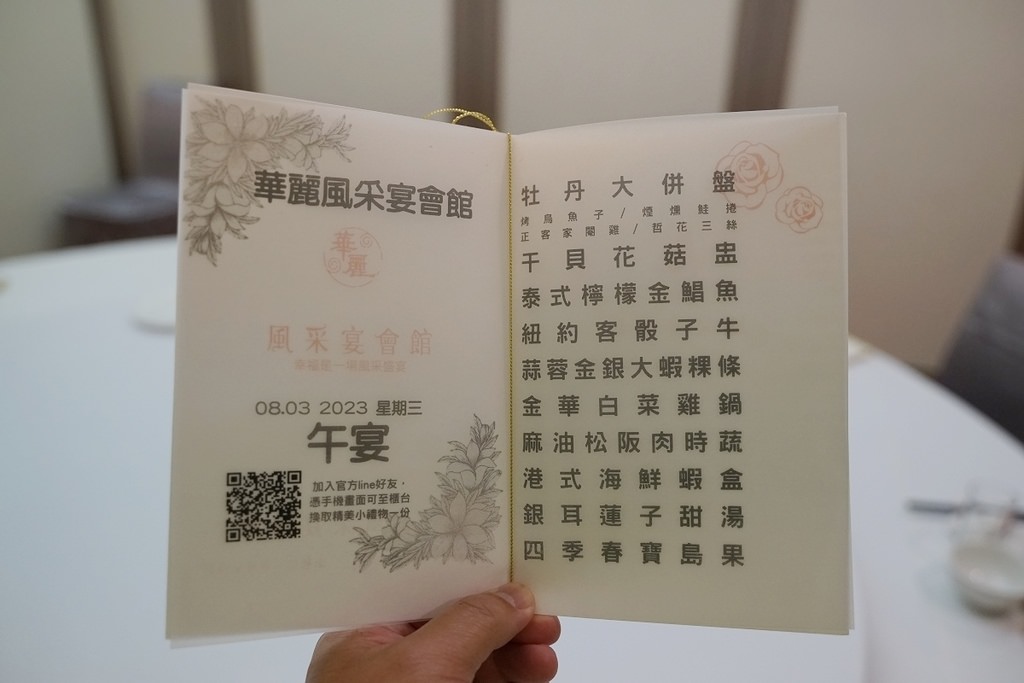 華麗風采宴會館
華麗
風采宴會館
08.03 2023 星期三
午宴
加入官方line好友，
憑手機畫面可至櫃台
換取精美小禮物一份
牡丹大併盤
烤烏魚子/煙燻鮭捲
正客家閹雞/哲花三絲
干貝花菇盅
泰式檸檬金鯧魚
紐約客骰子牛
蒜蓉金銀大蝦粿條
金華白菜雞鍋
麻油松阪肉時蔬
港式海鮮蝦盒
銀耳蓮子甜湯
四季春寶島果